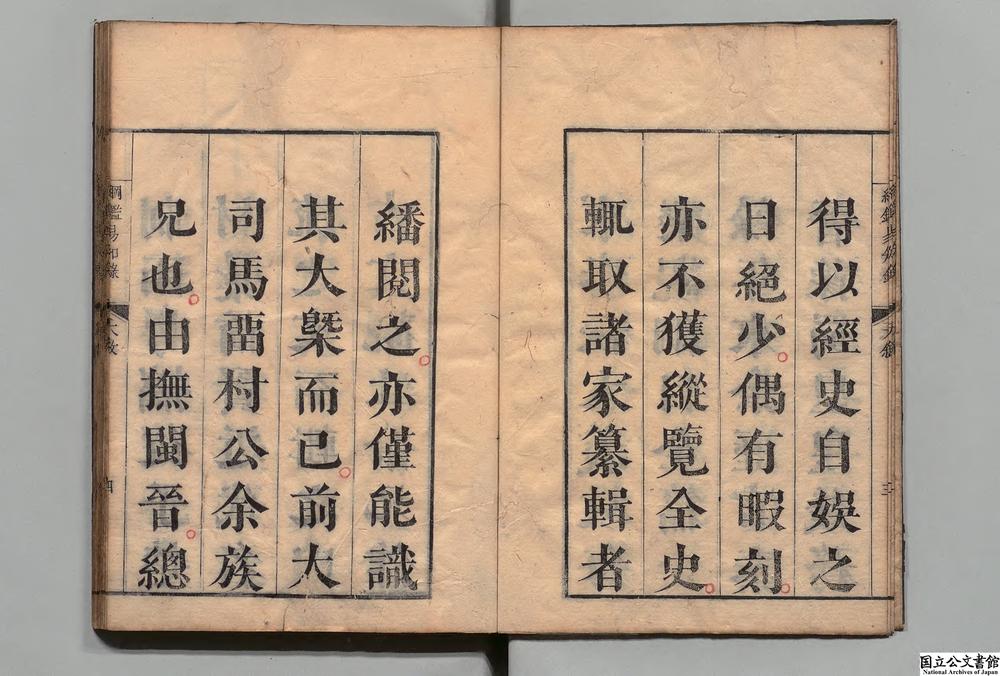 得以經史自娛之
日絕少偶有暇刻
亦不獲縱覽全史
輒取諸家纂輯者
繙閱之亦僅能識
其大槩而已前大
司馬畱村公余族
兄也由撫閩晉總
綱鑑易知錄
四
国立公文書館
National Archives of Japan